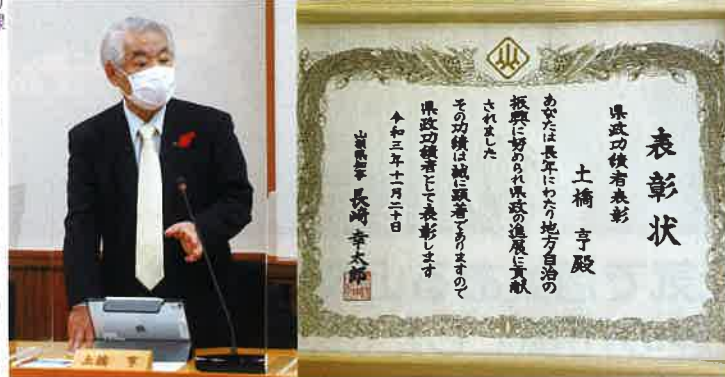 表彰状
県政功績者表彰
土橋 亨殿
あなたは長年にわたり地方自治の
振興に努められ県政の進展に貢献
されました
その功績は誠に顕著でありますので
県政功績者として表彰します
令和三年十一月二十日
山梨県知事 長崎幸太郎
土橋 亨